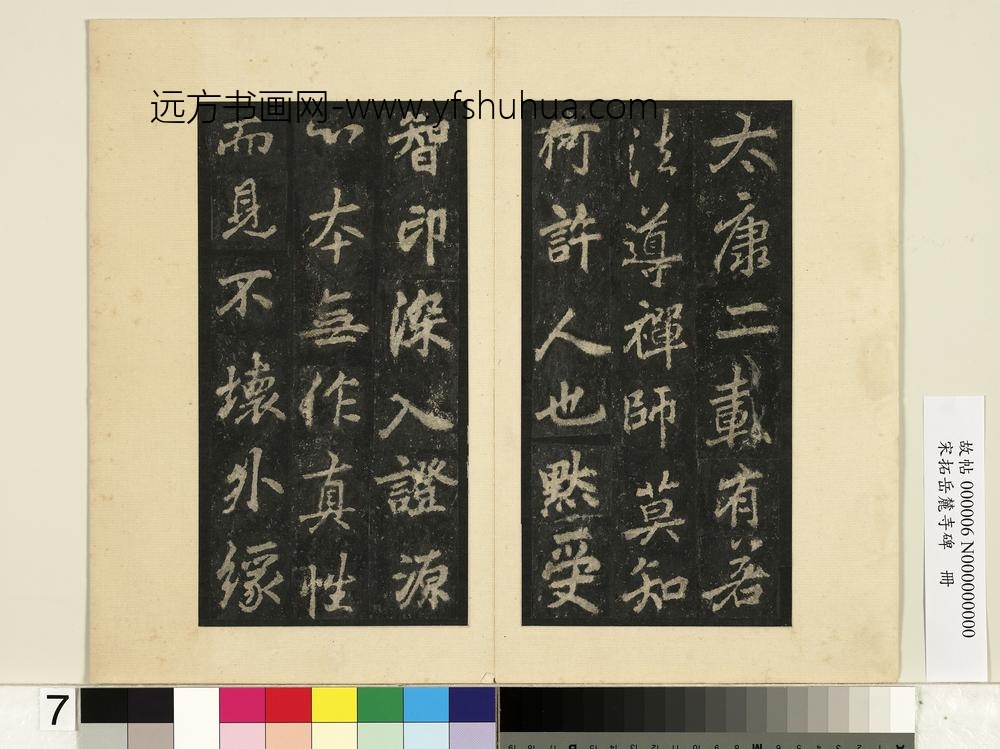 远方书画网-www.yfshuhua.com
太康二載有若
法導禪師莫知
何許人也黙受
智印深入證源
不本無作真性
而見不壞外緣
故帖 000006 N000000000
宋拓岳麓寺碑 冊
7